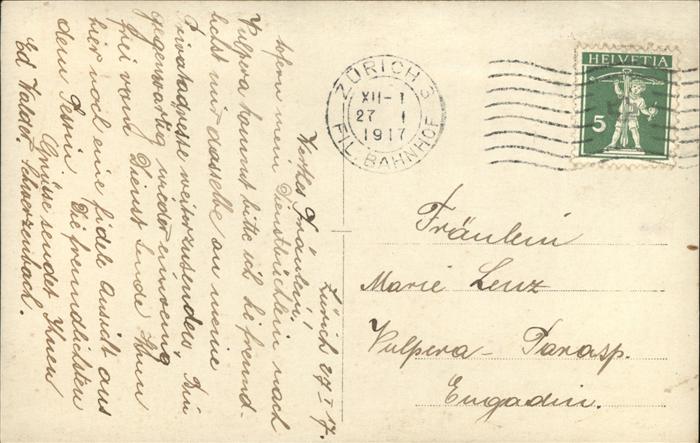 Zürich 27 I 17.
Wertes Fräulein!
Sofern mein Dienstbüchlein nach
Vulpera kommt bitte ich Sie freund-
lichst mir dasselbe an meine
Privatadresse weiterzusenden. Bin
gegenwärtig wieder ein wenig
frei vom Dienst. Sende Ihnen
hier noch eine fidele Ansicht aus
dem Tessin. Die freundlichsten
Grüsse sendet Ihnen
Ed. Schwerzenbach.
ZÜRICH 3
XII-1
27 I
1917
FIL. BAHNHOF
HELVETIA
5
Fräulein
Marie Lenz
Vulpera - Tarasp.
Engadin.